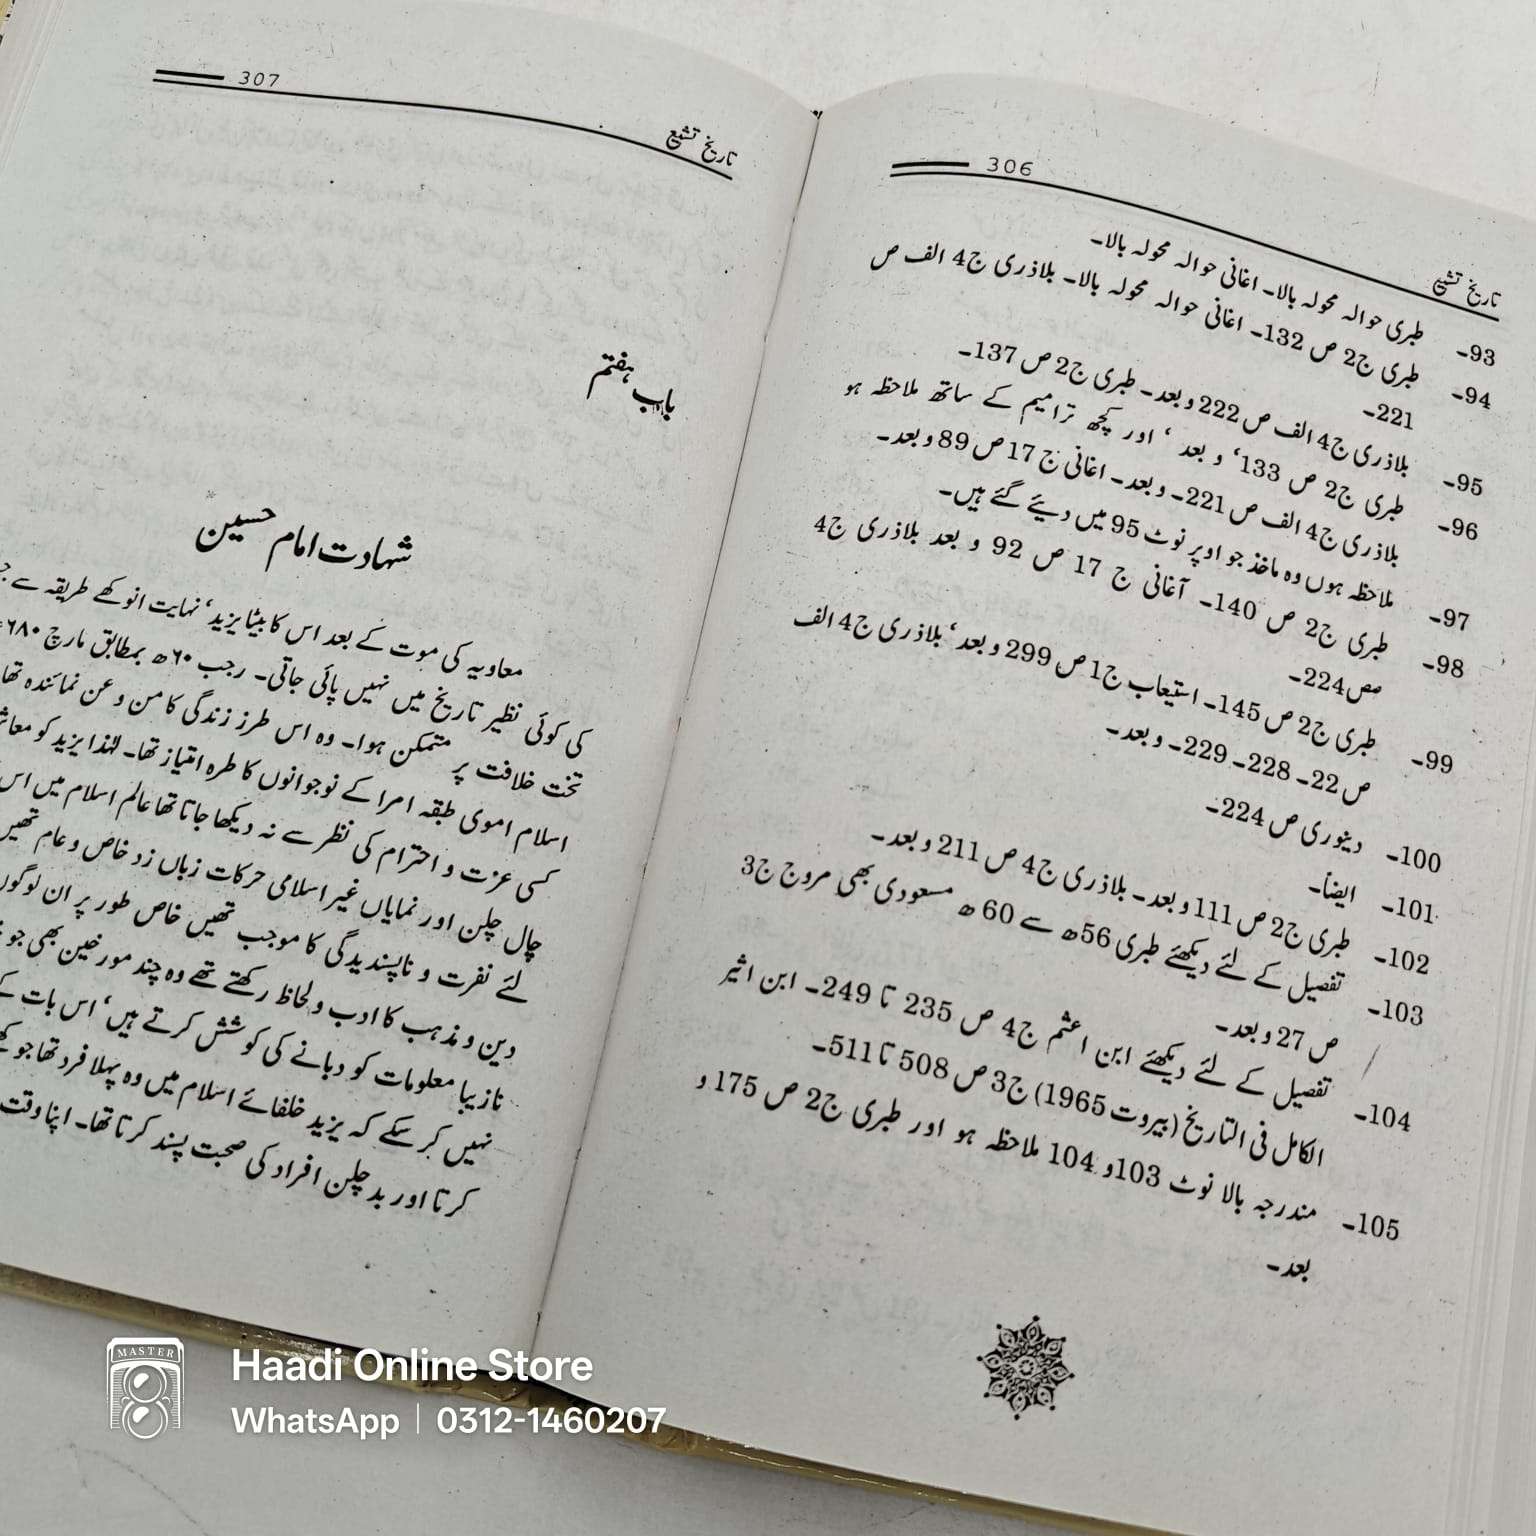 306
تاریخ تشیع
93۔ طبری حوالہ محولہ بالا۔ اغانی حوالہ محولہ بالا۔
94۔ طبری ج2 ص 132۔ اغانی حوالہ محولہ بالا۔ بلاذری ج4 الف ص
221۔
95۔ بلاذری ج4 الف ص 222 وبعد۔ طبری ج2 ص 137۔
96۔ طبری ج2 ص 133‘ و بعد ‘ اور کچھ ترامیم کے ساتھ ملاحظہ ہو
بلاذری ج4 الف ص 221۔ وبعد۔ اغانی ج 17 ص 89 وبعد۔
97۔ ملاحظہ ہوں وہ ماخذ جو اوپر نوٹ 95 میں دیئے گئے ہیں۔
98۔ طبری ج2 ص 140۔ آغانی ج 17 ص 92 و بعد بلاذری ج4
صص224۔
99۔ طبری ج2 ص 145۔ استیعاب ج1 ص 299 وبعد‘ بلاذری ج4 الف
ص 22۔ 228۔ 229۔ وبعد۔
100۔ دینوری ص 224۔
101۔ ایضاً۔
102۔ طبری ج2 ص 111 وبعد۔ بلاذری ج4 ص 211 وبعد۔
103۔ تفصیل کے لئے دیکھئے طبری 56ھ سے 60 ھ مسعودی بھی مروج ج3
ص 27 وبعد۔
104۔ تفصیل کے لئے دیکھئے ابن اعثم ج4 ص 235 تا 249۔ ابن اثیر
الکامل فی التاریخ (بیروت 1965) ج3 ص 508 تا 511۔
105۔ مندرجہ بالا نوٹ 103و 104 ملاحظہ ہو اور طبری ج2 ص 175 و
بعد۔
307
تاریخ تشیع
باب ہفتم
شہادت امام حسین
معاویہ کی موت کے بعد اس کا بیٹا یزید‘ نہایت انوکھے طریقہ سے
کی کوئی نظیر تاریخ میں نہیں پائی جاتی۔ رجب ۶۰ھ بمطابق مارچ ۶۸۰ء
تخت خلافت پر متمکن ہوا۔ وہ اس طرز زندگی کا من و عن نمائندہ تھا
اسلام اموی طبقہ امرا کے نوجوانوں کا طرہ امتیاز تھا۔ لہٰذا یزید کو
کسی عزت و احترام کی نظر سے نہ دیکھا جاتا تھا عالم اسلام میں اس
چال چلن اور نمایاں غیر اسلامی حرکات زباں زد خاص و عام تھیں
لئے نفرت و ناپسندیدگی کا موجب تھیں خاص طور پر ان لوگوں
دین و مذہب کا ادب و لحاظ رکھتے تھے وہ چند مورخین بھی جو
نازیبا معلومات کو دبانے کی کوشش کرتے ہیں‘ اس بات
نہیں کر سکے کہ یزید خلفائے اسلام میں وہ پہلا فرد تھا جو
کرتا اور بد چلن افراد کی صحبت پسند کرتا تھا۔ اپنا وقت
MASTER
Haadi Online Store
WhatsApp | 0312-1460207